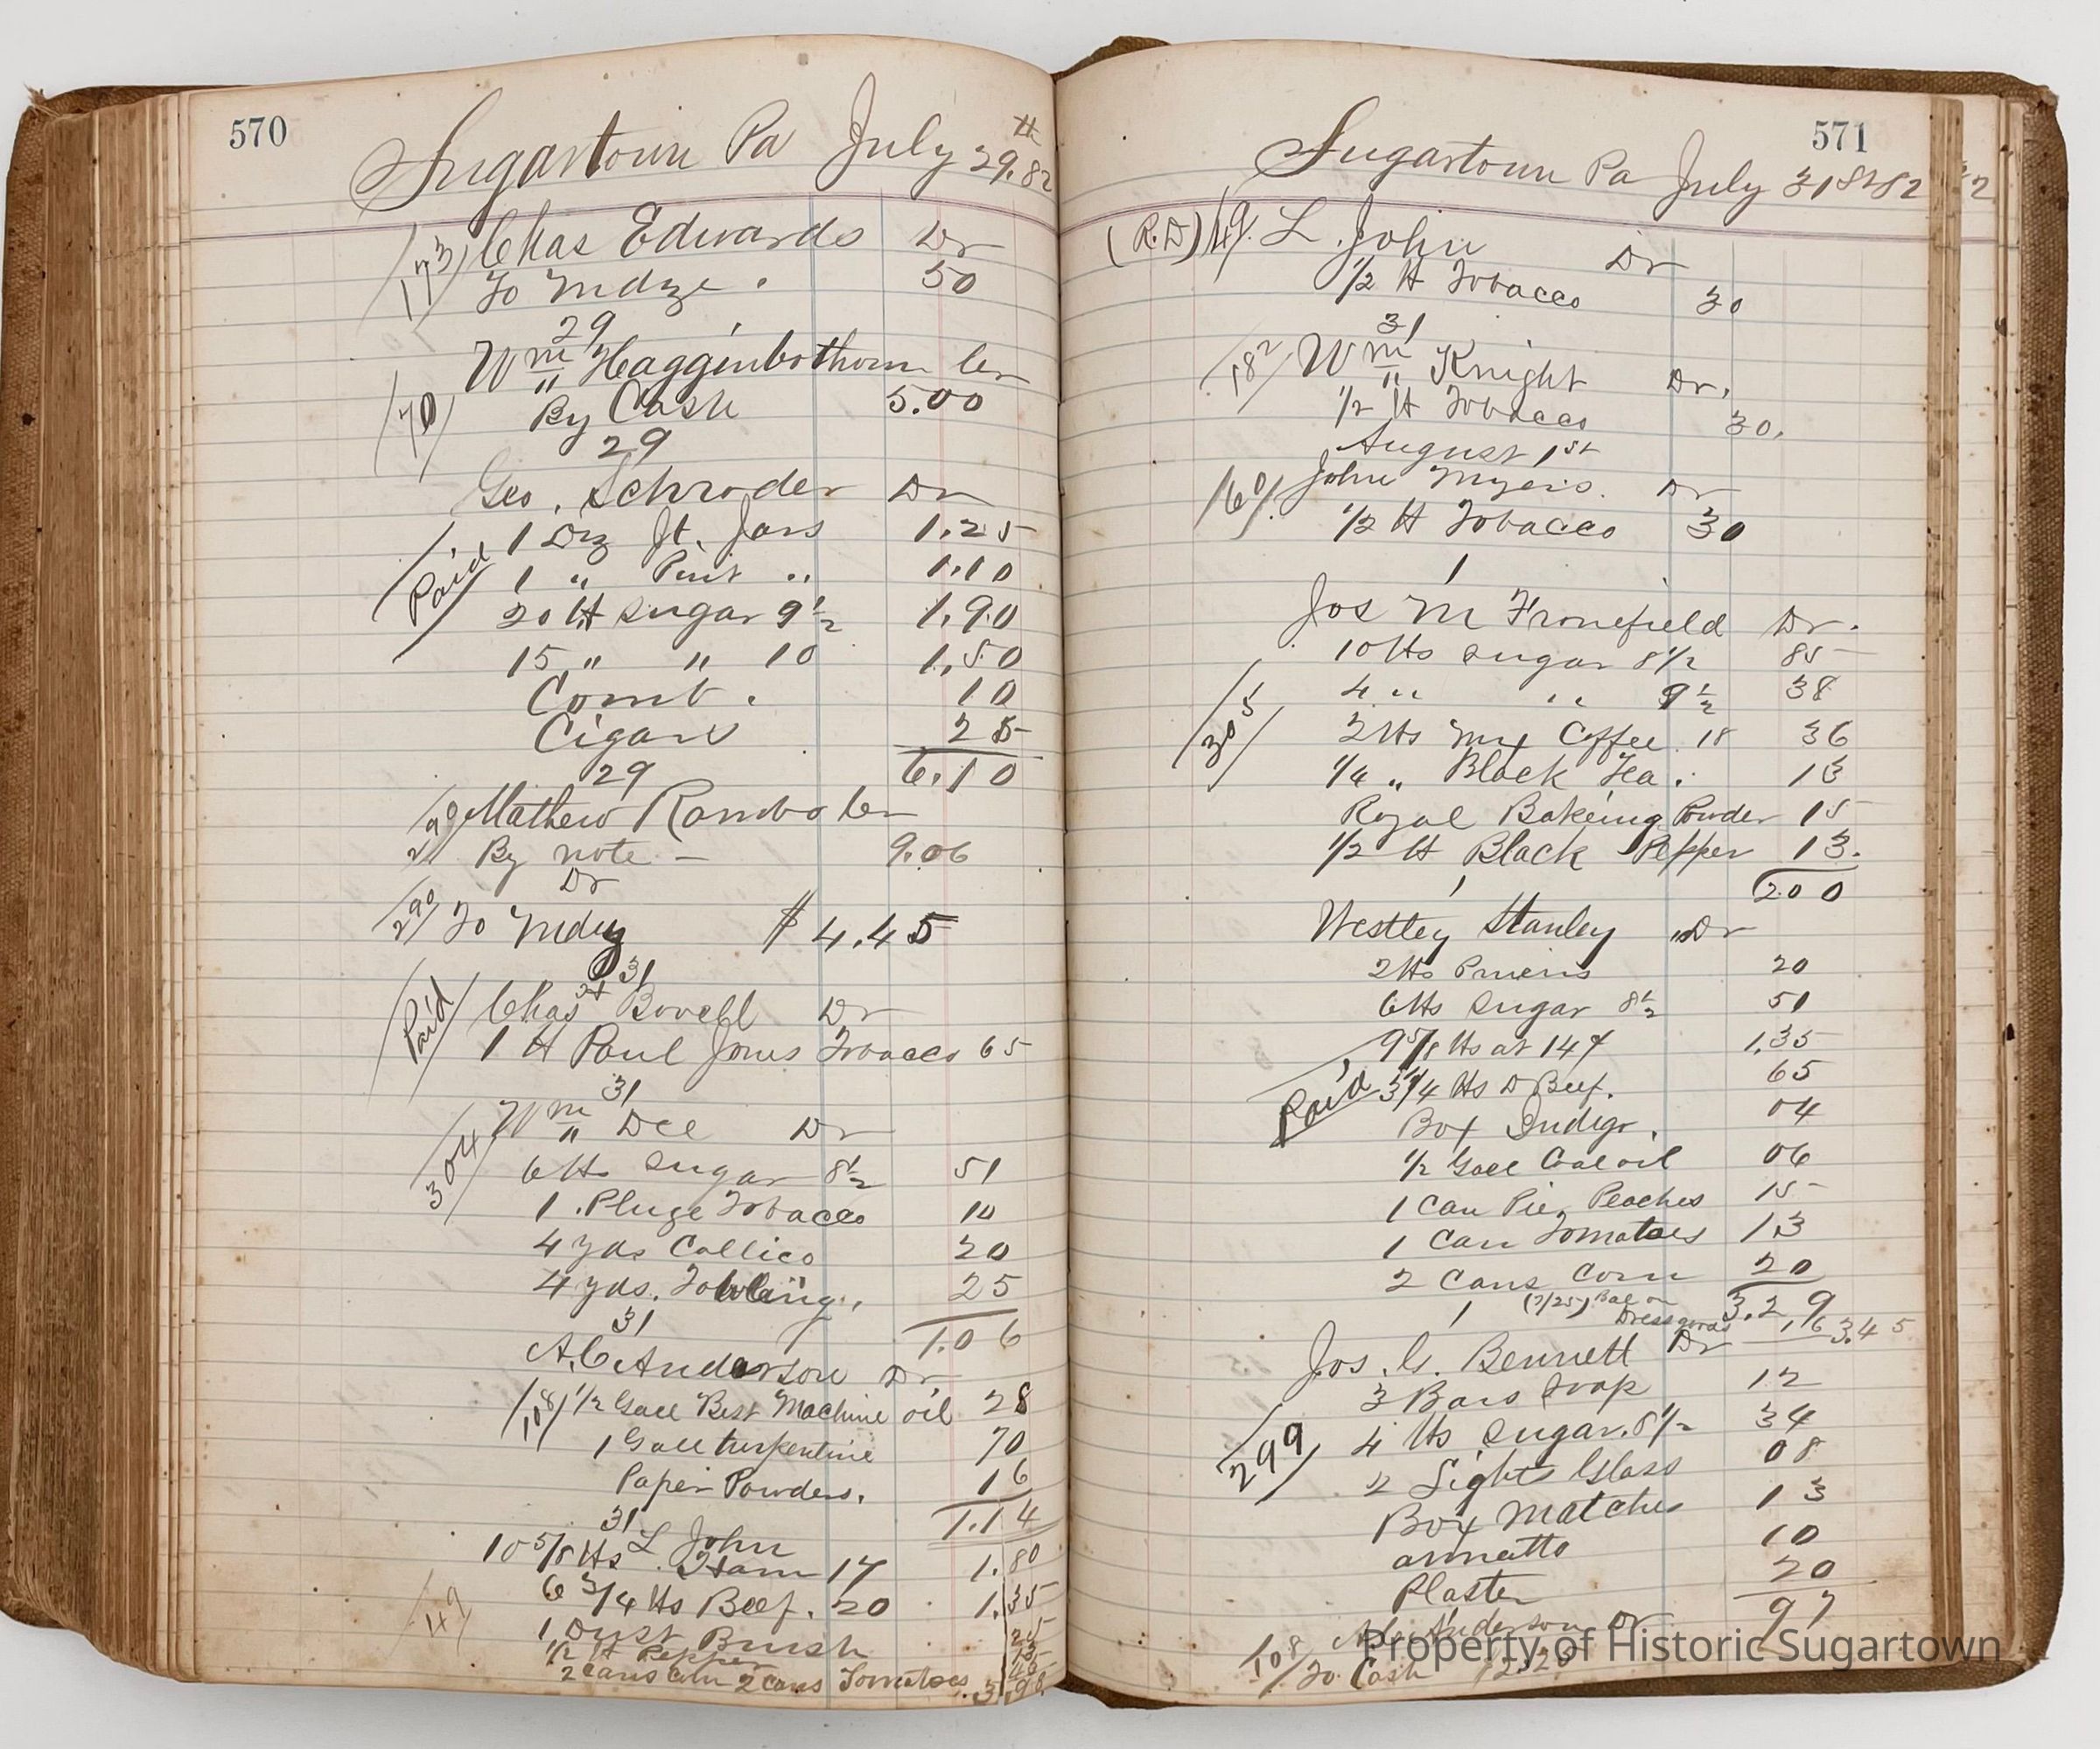 570
Sugartown Pa July 29th. 82
173 Chas Edwards Dr
To Mdze. 50
29
Wm Hagginbothom Cr
70 By Cash 5.00
29
Geo. Schroder Dr
Paid 1 Doz Jt. Jars 1.25
1 " Pint " 1.10
20 lb Sugar 9½ 1.90
15 " " 10 1.50
Comb. 10
Cigars 25
6.10
29
290 Mathew Rambo Cr
By note — 9.06
Dr
290 To Mdz $4.45
31
Paid Chas Bovell Dr
1 lb Paul Jones Tobacco 65
31
Wm Dee Dr
304 6 lbs Sugar 8½ 51
1 Pluge Tobacco 10
4 yds Callico 20
4 yds. Towling. 25
1.06
31
A. C Anderson Dr
108 ½ Gall Best Machine oil 28
1 Gall turpentine 70
Paper Powders. 16
1.14
31
L John
10 5/8 lbs Ham 17 1.80
6 3/4 lbs Beef. 20 1.35
49 1 Dust Brush 25
½ lb Pepper
2 cans corn 2 cans Tomatoes
571
Sugartown Pa July 31st 82
(R.D) 49 L. John Dr
½ lb Tobacco 30
31
182 Wm Knight Dr.
½ lb Tobacco 30.
August 1st
160 John Myers. Dr
½ lb Tobacco 30
1
Jos M Fronefield Dr.
10 lbs Sugar 8½ 85
4 " " 9½ 38
305 2 lbs Mx Coffee 18 36
¼ " Black Tea. 13
Royal Bakeing Powder 15
½ lb Black Pepper 13.
200
1
Westley Stanley Dr
2 lbs Pruens 20
6 lbs Sugar 8½ 51
9 5/8 lbs at 14¢ 1.35
Paid 3 1/4 lbs D Beef. 65
Box Indigo. 04
½ Gall Coal oil 06
1 Can Pie Peaches 15
1 Can Tomatoes 13
2 Cans Corn 20
3.29
1 (7/25) Bal on Dress goods .16 3.45
Jos. G. Bennett Dr
3 Bars Soap 12
299 4 lbs Sugar. 8½ 34
2 Lights Glass 08
Box Matches 13
annatto 10
Plaster 20
97
108 Anderson Dr
To Cash
Property of Historic Sugartown